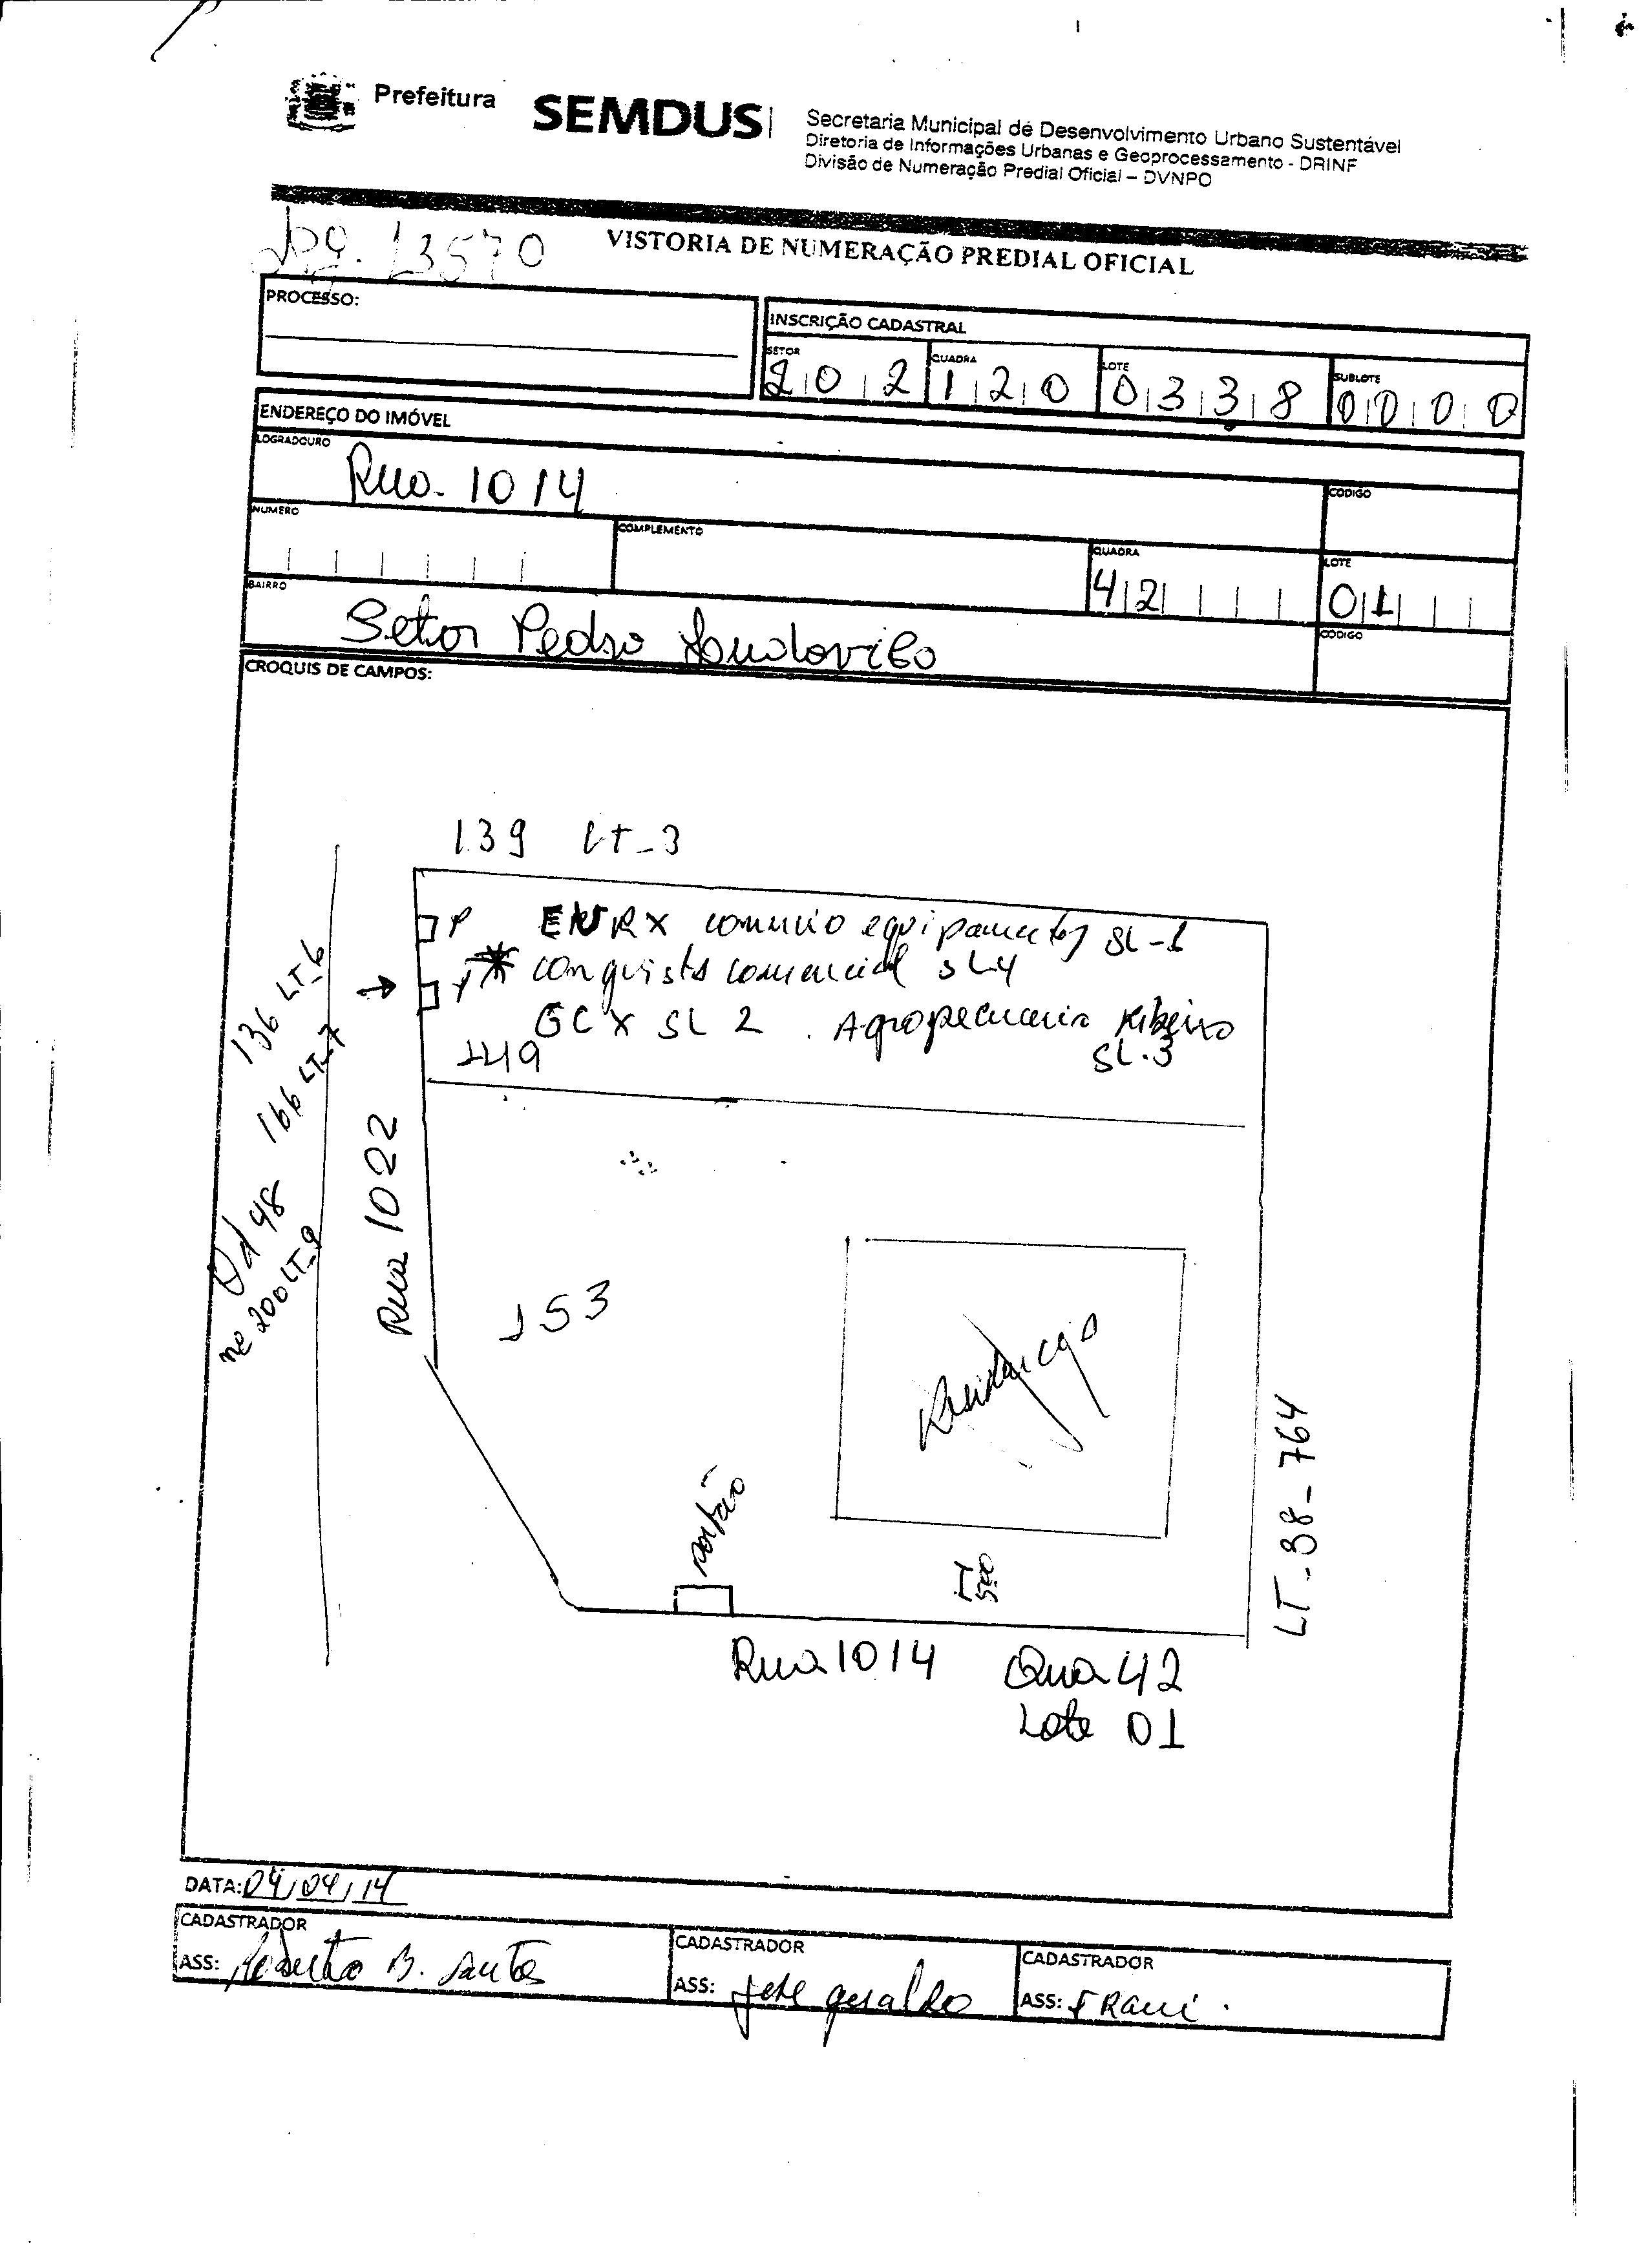 Prefeitura SEMDUS
Secretaria Municipal de Desenvolvimento Urbano Sustentável
Diretoria de Informações Urbanas e Geoprocessamento - DRINF
Divisão de Numeração Predial Oficial – DVNPO
13570
VISTORIA DE NUMERAÇÃO PREDIAL OFICIAL
PROCESSO:
INSCRIÇÃO CADASTRAL
SETOR QUADRA LOTE SUBLOTE
202 120 0338 0000
ENDEREÇO DO IMÓVEL
LOGRADOURO CODIGO
Rua 1014
NUMERO COMPLEMENTO QUADRA LOTE
42 01
BAIRRO CODIGO
Setor Pedro Ludovico
CROQUIS DE CAMPOS:
139 LT-3
P ENRX comercio equipamentos SL-1
conquista comercial SL4
GCX SL 2 . Agropecuaria Ribeiro
SL.3
149
136 LT-6
166 LT-7
Qd 48
nº 200 LT-9
Rua 1022
153
Residencia
portão
LT-38-764
Rua 1014
Qua 42
Lote 01
DATA: 04/04/14
CADASTRADOR CADASTRADOR CADASTRADOR
ASS: Roberto B. Santos ASS: José geraldo ASS: